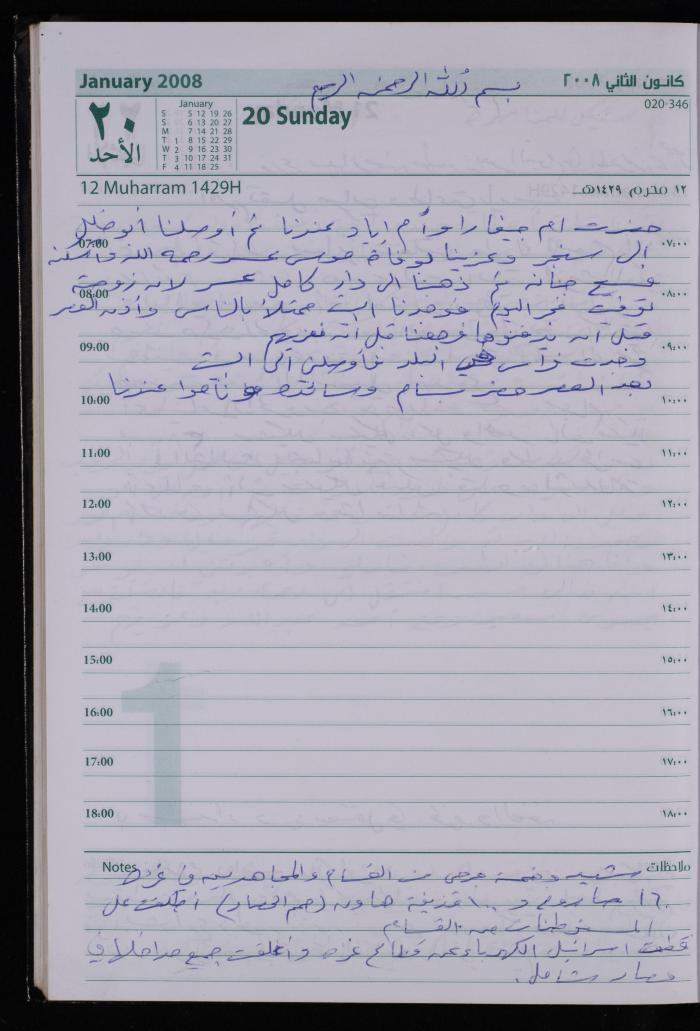 January 2008
بسم الله الرحمن الرحيم
كانون الثاني ٢٠٠٨
٢٠
الأحد
January
S 5 12 19 26
S 6 13 20 27
M 7 14 21 28
T 1 8 15 22 29
W 2 9 16 23 30
T 3 10 17 24 31
F 4 11 18 25
20 Sunday
020-346
12 Muharram 1429H
١٢ محرم ١٤٢٩هـ
حضرت ام جيفارا وأم اياد عندنا ثم أوصلنا أبو فضل
07:00 ٠٧:٠٠
ال سنجر وعزينا لوفاة موسى رحمه الله وأسكنه
فسيح جنانه ثم ذهبنا الى دار كامل لان زوجته
08:00 ٠٨:٠٠
توفيت فجر اليوم فوجدنا البيت ممتلأ بالناس وأذن العصر
قبل أن يدفنوها فرجعنا قبل أن نعزيهم
09:00 ٠٩:٠٠
وجدت فراس في البلد فأوصلني الى البيت
بعد العصر حضر بسام وعائلته وناموا عندنا
10:00 ١٠:٠٠
11:00 ١١:٠٠
12:00 ١٢:٠٠
13:00 ١٣:٠٠
14:00 ١٤:٠٠
15:00 ١٥:٠٠
16:00 ١٦:٠٠
17:00 ١٧:٠٠
18:00 ١٨:٠٠
1
Notes ملاحظات
شهيد وخمسة جرحى من القسام والمجاهدين في غزة
١٦٠ صاروخ و ١٠٠ قذيفة هاون (حمم الحصار) أطلقت على
المستوطنات من القسام
قطعت اسرائيل الكهرباء عن قطاع غزة وأغلقت جميع مداخلها في
حصار شامل.